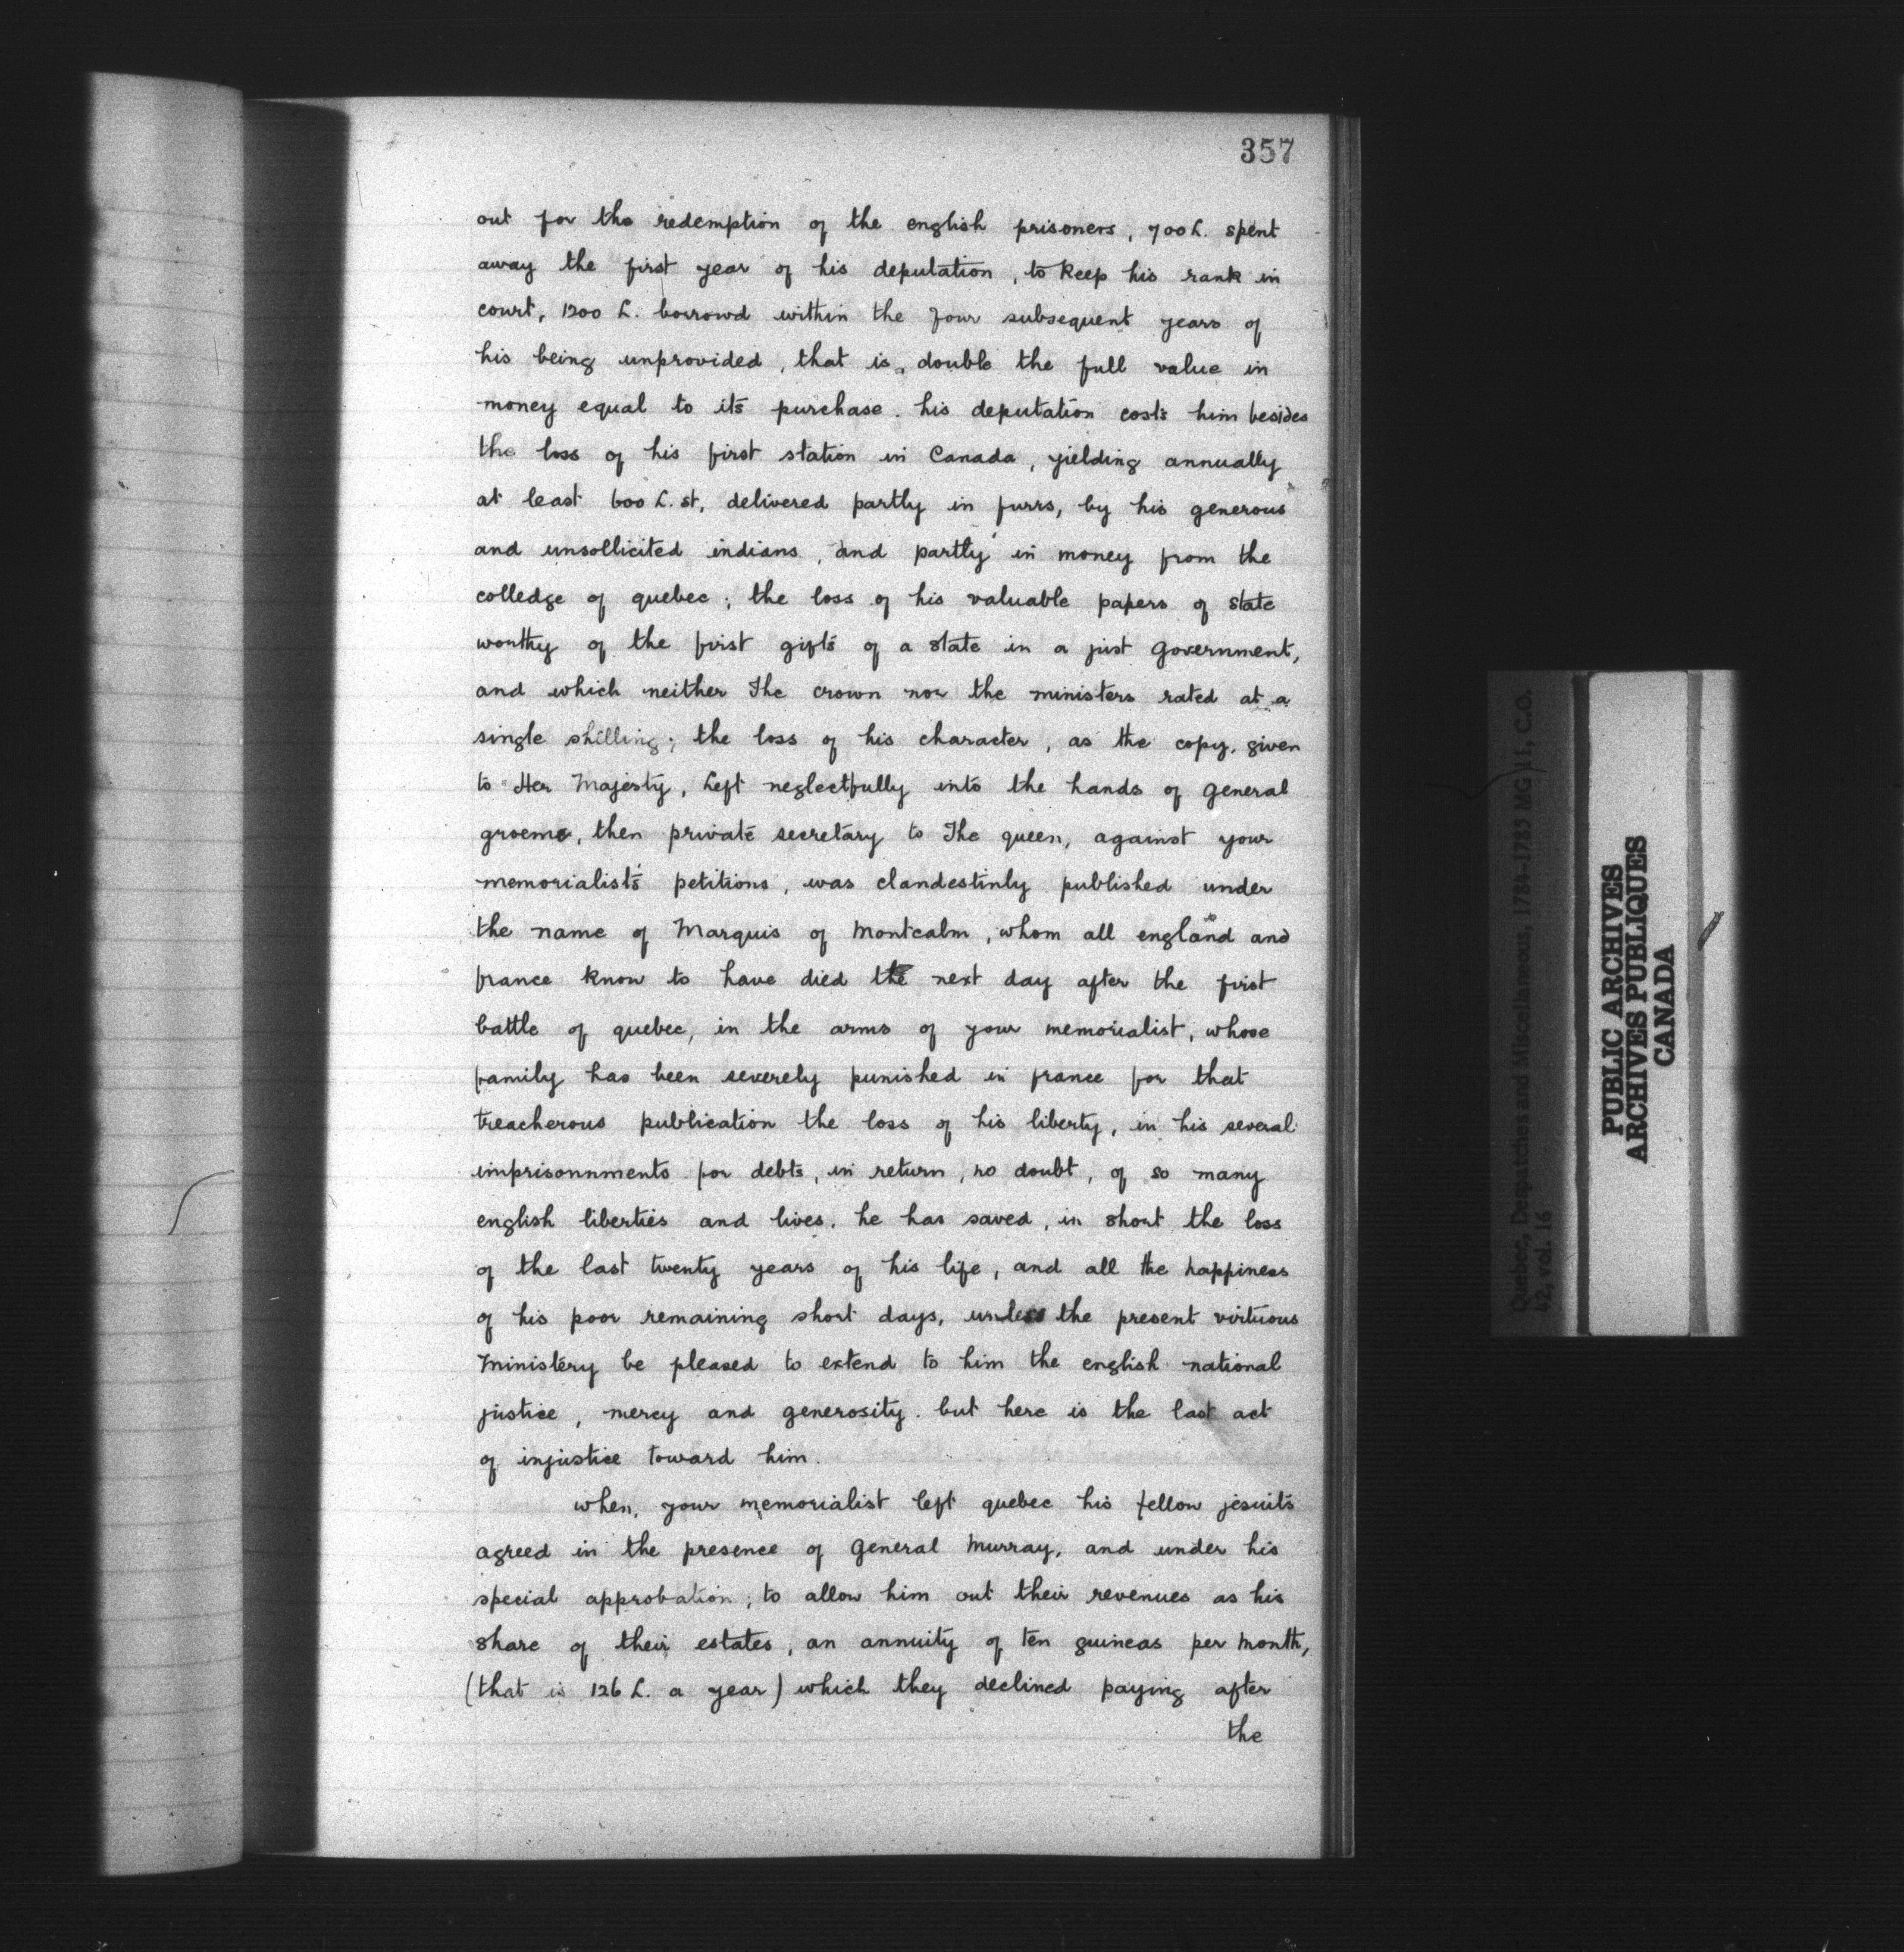 357
out for the redemption of the english prisoners, 700 L. spent
away the first year of his deputation, to keep his rank in
court, 1200 L. borrowd within the four subsequent years of
his being unprovided, that is, double the full value in
money equal to its purchase. his deputation costs him besides
the loss of his first station in Canada, yielding annually
at least 600 L. st, delivered partly in furrs, by his generous
and unsollicited indians, and partly in money from the
colledge of quebec; the loss of his valuable papers of state
worthy of the first gifts of a state in a just government,
and which neither The crown nor the ministers rated at a
single shilling; the loss of his character, as the copy, given
to Her Majesty, left neglectfully into the hands of general
groeme, then private secretary to The queen, against your
memorialist's petitions, was clandestinly published under
the name of Marquis of Montcalm, whom all england and
france know to have died the next day after the first
battle of quebec, in the arms of your memorialist, whose
family has been severely punished in france for that
treacherous publication the loss of his liberty, in his several
imprisonnments for debts, in return, no doubt, of so many
english liberties and lives. he has saved, in short the loss
of the last twenty years of his life, and all the happiness
of his poor remaining short days, unless the present virtuous
Ministery be pleased to extend to him the english national
justice, mercy and generosity. but here is the last act
of injustice toward him.
when, your memorialist left quebec his fellow jesuits
agreed in the presence of General Murray, and under his
special approbation; to allow him out their revenues as his
share of their estates, an annuity of ten guineas per month,
(that is 126 L. a year) which they declined paying after
the
Quebec, Despatches and Miscellaneous, 1784-1785 MG 11, C.O.
42, vol. 16
PUBLIC ARCHIVES
ARCHIVES PUBLIQUES
CANADA